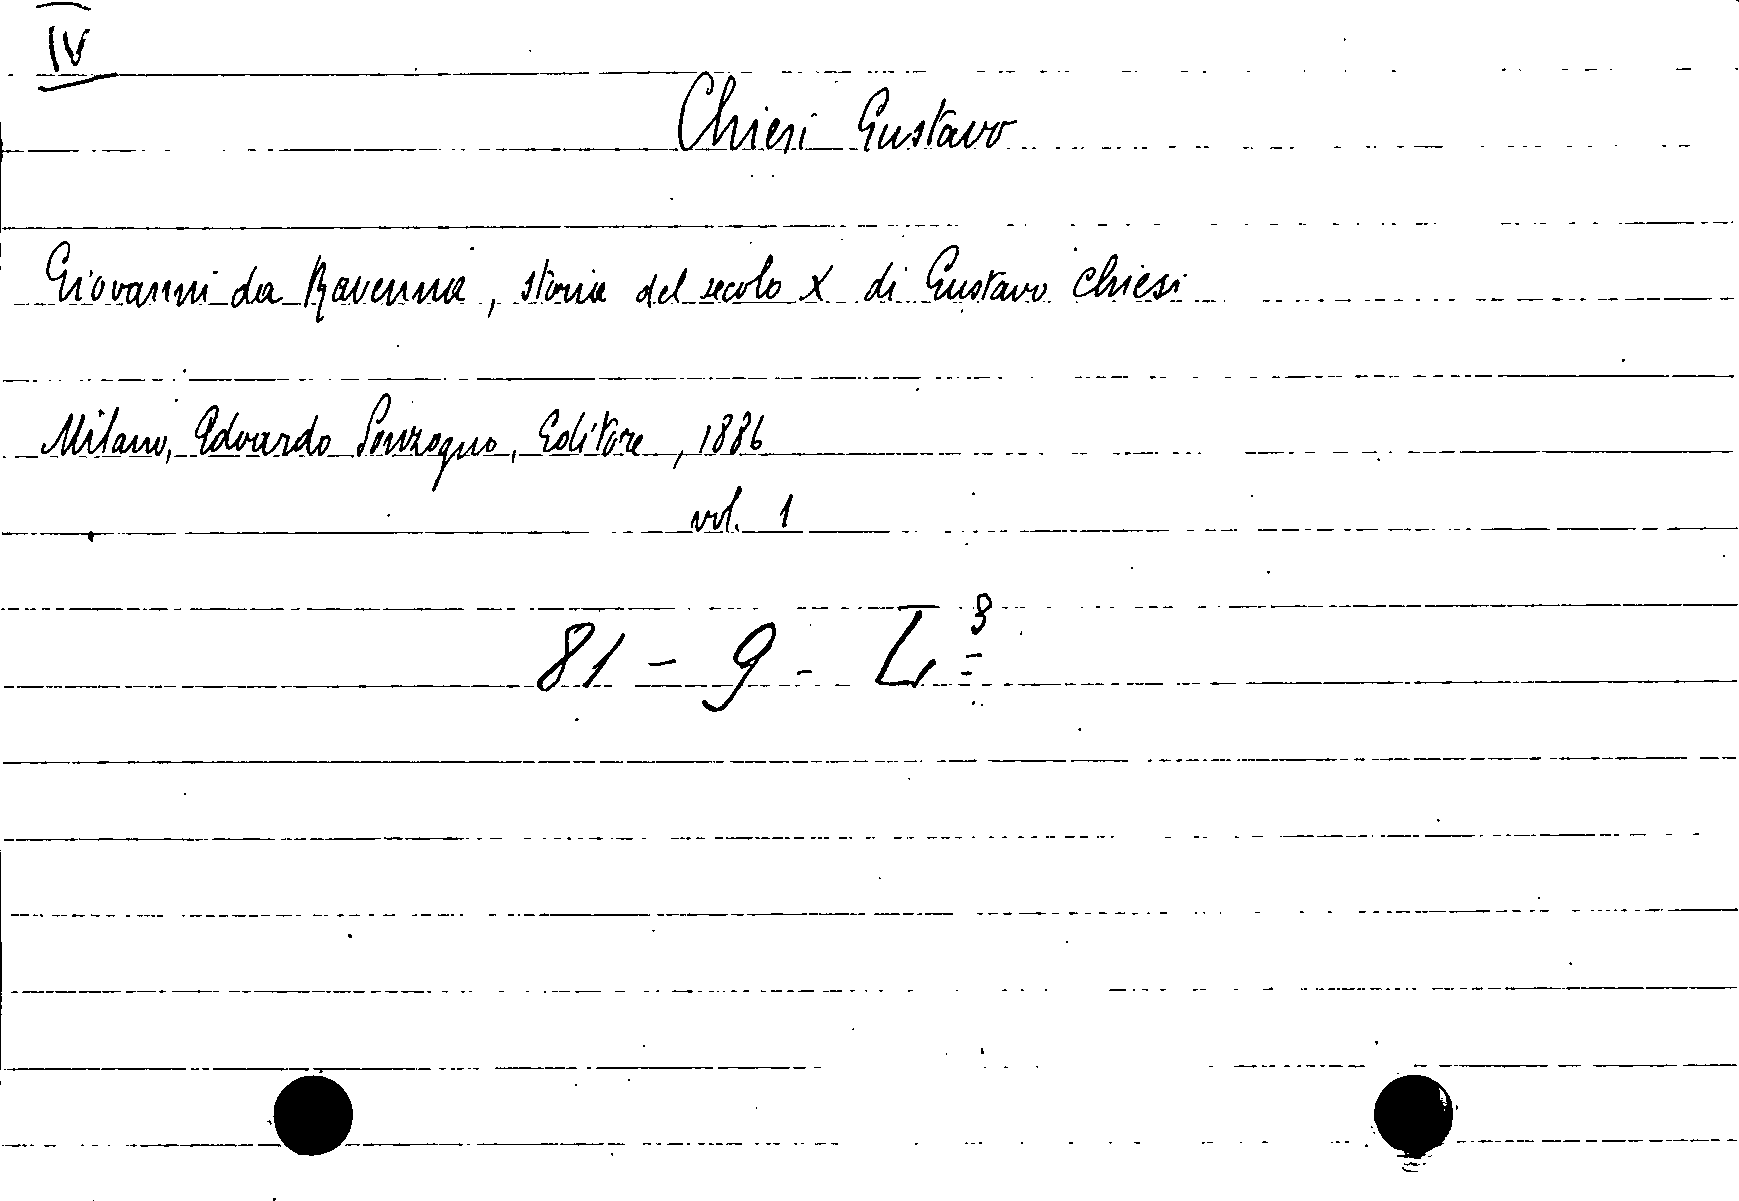 IV
Chiesi Gustavo
Giovanni da Ravenna, storia del secolo X di Gustavo Chiesi
Milano, Edoardo Sonzogno, Editore, 1886
vol. 1
81 - 9 - L 3